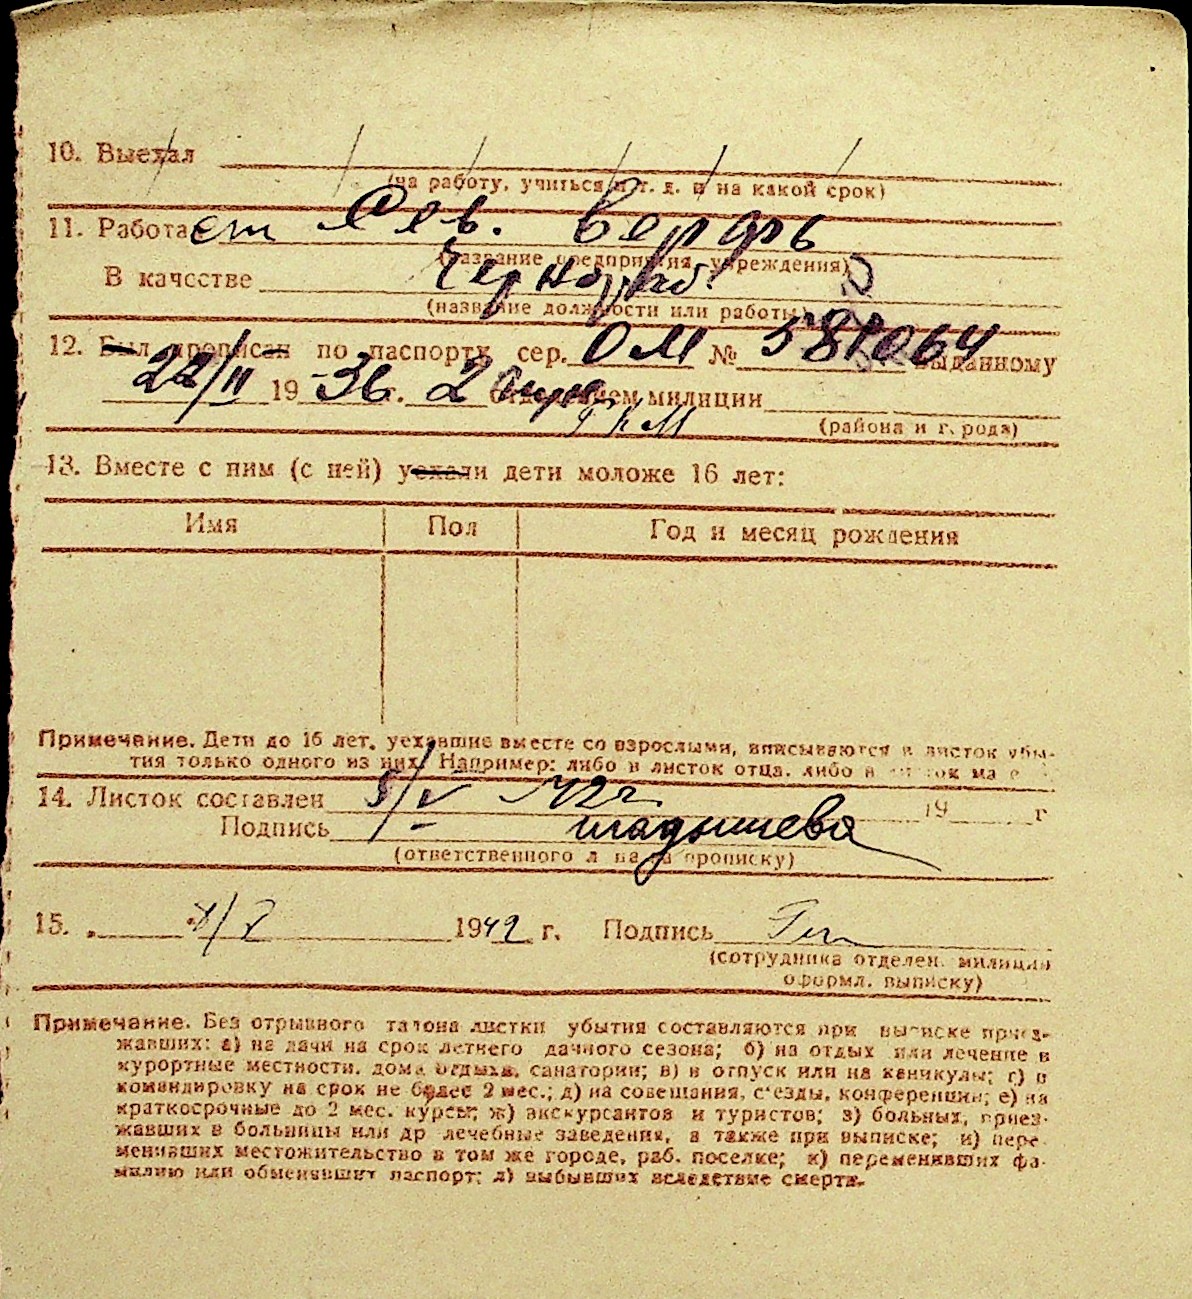 10. Выехал
(на работу, учиться и т. д. и на какой срок)
11. Работает Сев. Верфь
(название предприятия, учреждения)
В качестве Чернораб.
(название должности или работы)
12. Был прописан по паспорту сер. ОМ № 581064 выданному
22/II 1936 г. 2 отделением милиции
РКМ
(района и города)
13. Вместе с ним (с ней) уехали дети моложе 16 лет:
Имя Пол Год и месяц рождения
Примечание. Дети до 16 лет, уехавшие вместе со взрослыми, вписываются в листок убы-
тия только одного из них. Например: либо в листок отца, либо в листок ма
14. Листок составлен 5/V 42г 19 г
Подпись Шадышева
(ответственного лица за прописку)
15. /V 1942 г. Подпись
(сотрудника отделен. милиции
оформл. выписку)
Примечание. Без отрывного талона листки убытия составляются при выписке приез-
жавших: а) на дачи на срок летнего дачного сезона; б) на отдых или лечение в
курортные местности, дома отдыха, санатории; в) в отпуск или на каникулы; г) в
командировку на срок не более 2 мес.; д) на совещания, с'езды, конференции; е) на
краткосрочные до 2 мес. курсы; ж) экскурсантов и туристов; з) больных, приез-
жавших в больницы или др лечебные заведения, а также при выписке; и) пере-
менивших местожительство в том же городе, раб. поселке; к) переменивших фа-
милию или обменявших паспорт; л) выбывших вследствие смерти.